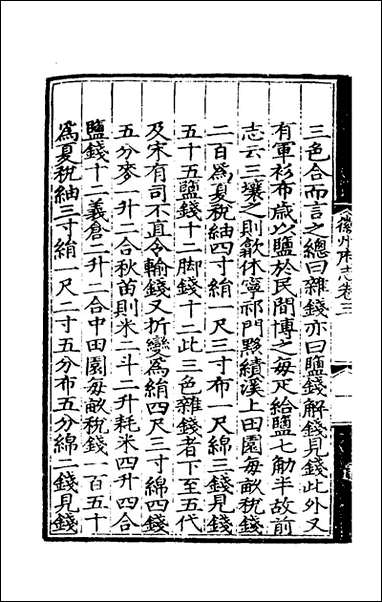 三色合而言之總曰雜錢亦曰鹽錢解錢見錢此外又
有軍衫布歲以鹽於民間博之每疋給鹽七觔半故前
志云三壤之則歙休寧祁門黟績溪上田園每畝稅錢
二百爲夏稅紬四寸絹一尺三寸布一尺綿三錢見錢
五十五鹽錢十二脚錢十二此三色雜錢者下至五代
及宋有司不直令輸錢又折變爲絹四尺三寸綿四錢
五分麥一升二合秋苗則米二斗二升耗米四升四合
鹽錢十二義倉二升二合中田園每畝稅錢一百五十
爲夏稅紬三寸絹一尺二寸五分布五分綿二錢見錢
徽州府志卷三